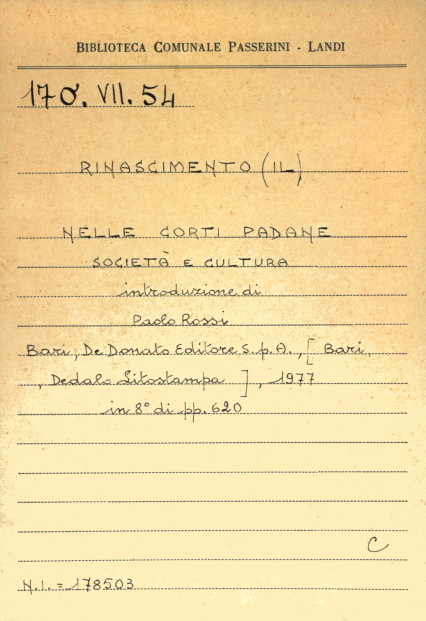 BIBLIOTECA COMUNALE PASSERINI - LANDI
170. VII. 54
RINASCIMENTO (IL)
NELLE CORTI PADANE
SOCIETÀ E CULTURA
introduzione di
Paolo Rossi
Bari, De Donato Editore S.p.A., [ Bari,
, Dedalo Litostampa ] , 1977
in 8° di pp. 620
C
N.I. = 178503